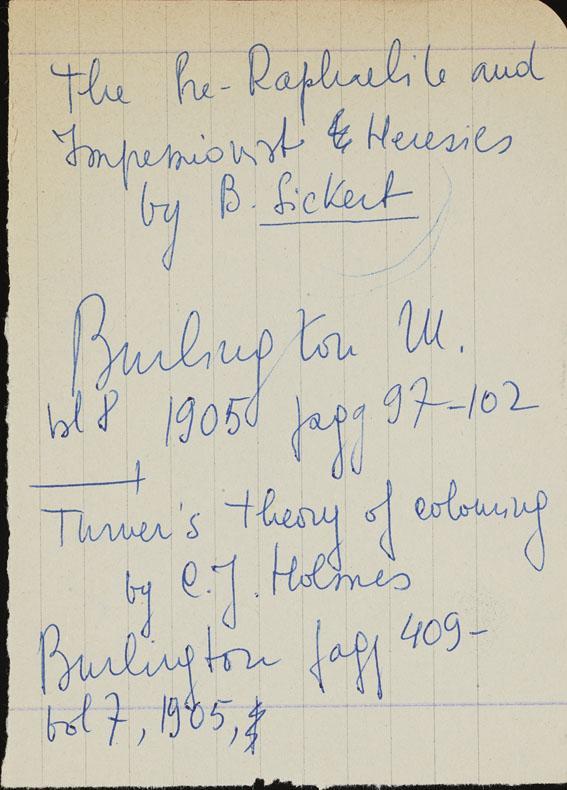 The Pre-Raphaelite and
Impressionist & Heresies
by B. Sickert
Burlington M.
vol 8 1905 pagg 97-102
Turner's theory of colouring
by C.J. Holmes
Burlington pagg 409-
vol 7, 1905,